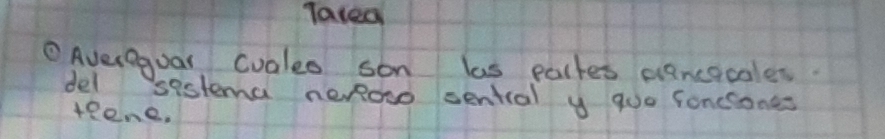 Tarea
① Averiguar cuales son las partes principales.
del sistema nervoso sentral y que fonciones
tiene.